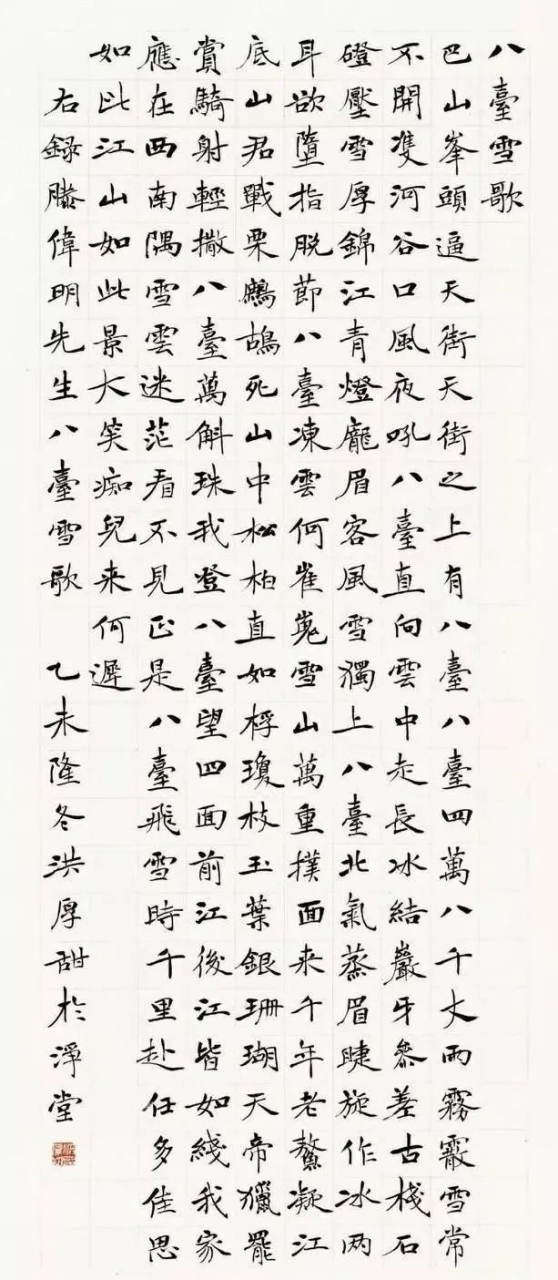 八臺雪歌
巴山峯頭逼天街天街之上有八臺八臺四萬八千丈雨霧霰雪常
不開雙河谷口風夜吼八臺直向雲中走長冰結巖牙參差古棧石
磴壓雪厚錦江青燈龐眉客風雪獨上八臺北氣蒸眉睫旋作冰两
耳欲墮指脫節八臺凍雲何崔嵬雪山萬重撲面来千年老鰲凝江
底山君戰栗鷓鴣死山中松柏直如桴瓊枝玉葉銀珊瑚天帝獵罷
賞騎射輕撒八臺萬斛珠我登八臺望四面前江後江皆如綫我家
應在西南隅雪雲迷茫看不見正是八臺飛雪時千里赴任多佳思
如此江山如此景大笑痴兒来何遲
右録滕偉明先生八臺雪歌 乙未隆冬洪厚甜於淨堂